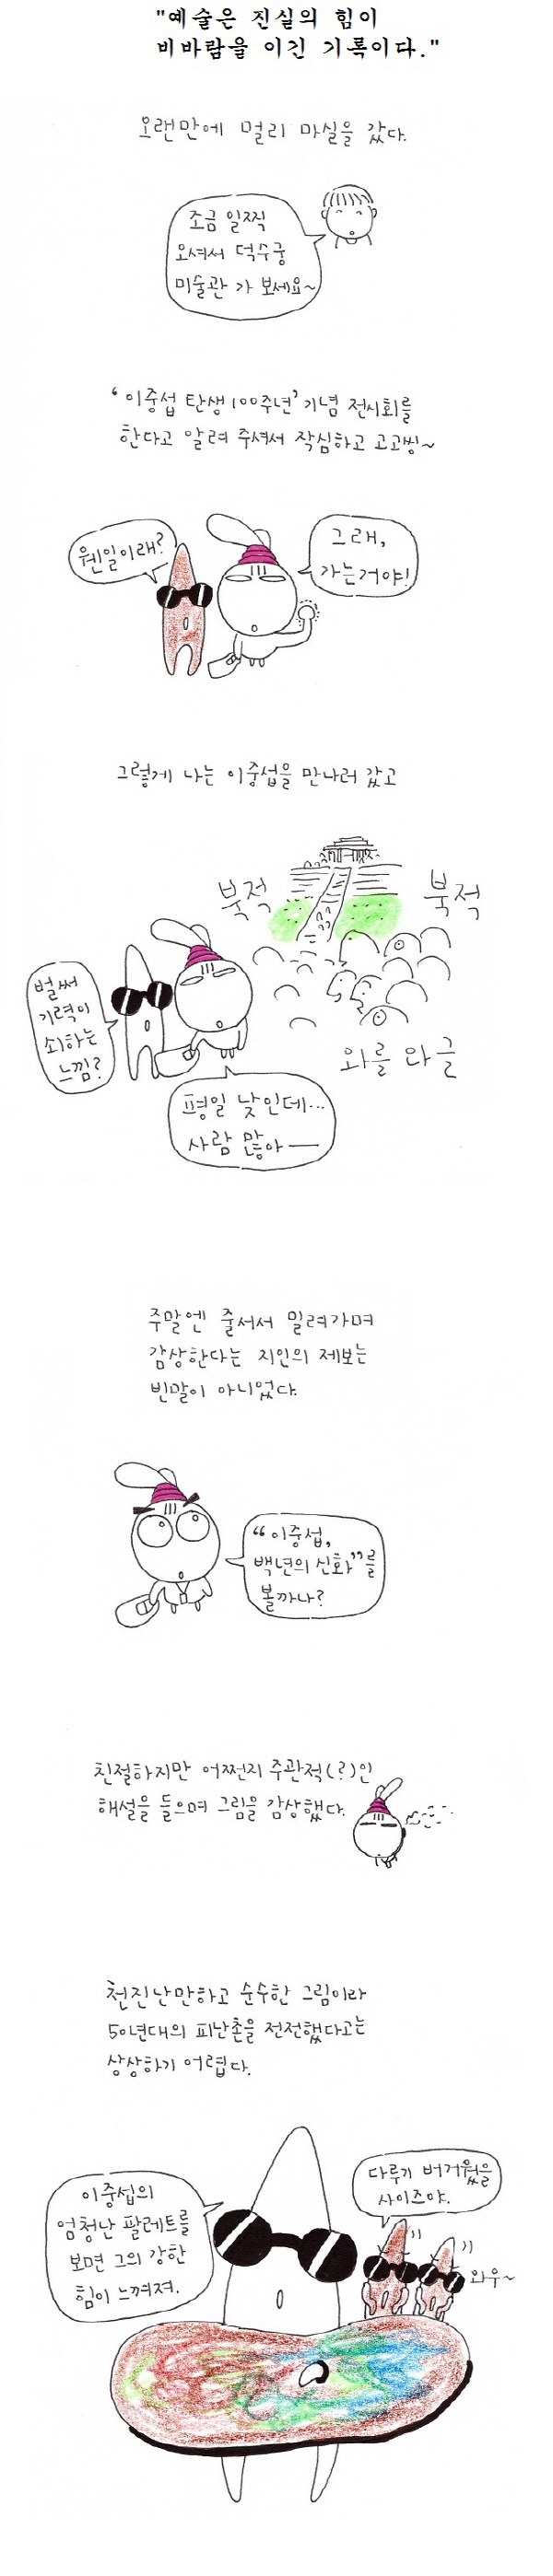 "예술은 진실의 힘이
비바람을 이긴 기록이다."
오랜만에 멀리 마실을 갔다.
조금 일찍
오셔서 덕수궁
미술관 가 보세요~
'이중섭 탄생 100주년' 기념 전시회를
한다고 알려 주셔서 작심하고 고고씽~
웬일이래?
그래,
가는거야!
그렇게 나는 이중섭을 만나러 갔고
북적
북적
벌써
기력이
쇠하는
느낌?
와글 와글
평일 낮인데...
사람 많아ー
주말엔 줄서서 밀려가며
감상한다는 지인의 제보는
빈말이 아니었다.
"이중섭,
백년의 신화"를
볼까나?
친절하지만 어쩐지 주관적(?)인
해설을 들으며 그림을 감상했다.
천진난만하고 순수한 그림이라
50년대의 피난촌을 전전했다고는
상상하기 어렵다.
이중섭의
엄청난 팔레트를
보면 그의 강한
힘이 느껴져.
다루기 버거웠을
사이즈야.
와우~